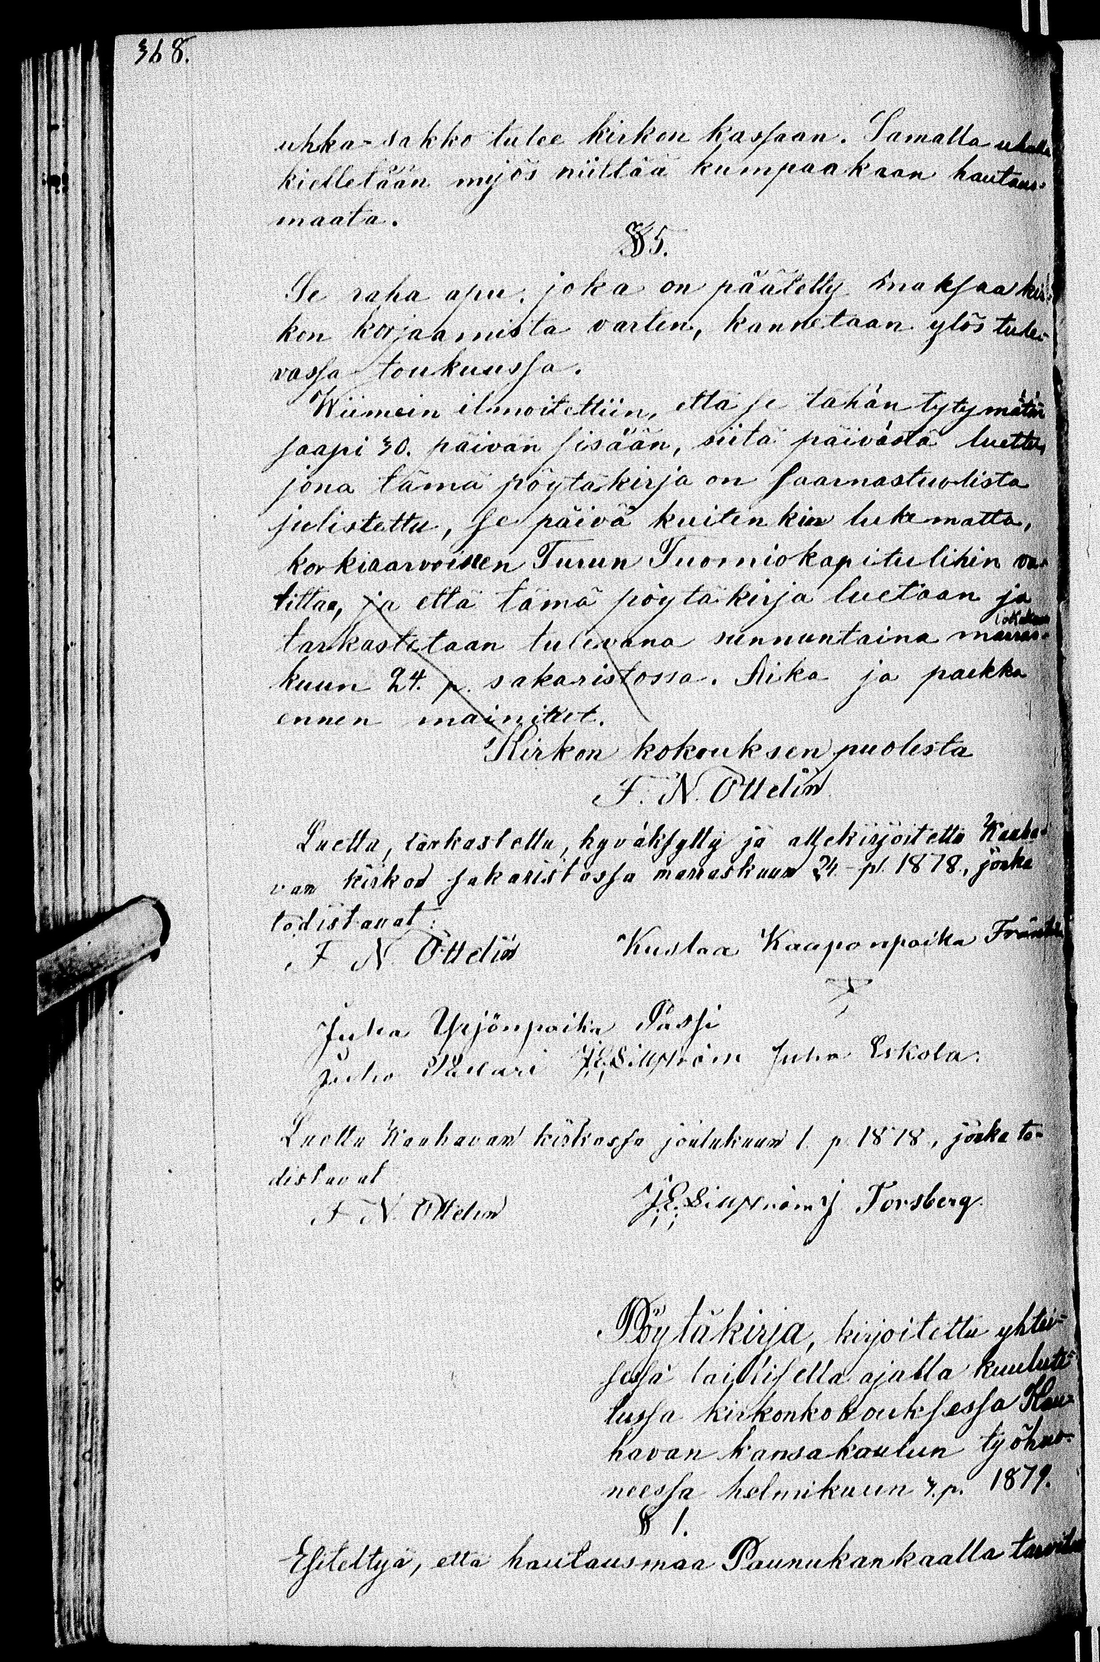 368.
uhka-sakko tulee kirkon kassaan. Samalla uhalla
kielletään myös niittää kumpaakaan hautaus-
maata.
§ 5.
Se raha apu, joka on päätetty maksaa kir-
kon korjaamista varten, kannetaan ylös tule-
vassa toukuussa.
Wiimein ilmoitettiin, että se tähän tytymätöin
saapi 30. päivän sisään, siitä päivästä luettu,
jona tämä pöytäkirja on saarnastuolista
julistettu, se päivä kuitenkin lukematta,
korkiaarvoisen Turun Tuomiokapitulihin va-
littaa, ja että tämä pöytäkirja luetaan ja
tarkastetaan tulevana sunnuntaina marras-
kuun 24. p. sakaristossa. Aika ja paikka
ennen mainitut.
Kirkon kokouksen puolesta
F. N. Ottelin
Luettu, tarkastettu, hyväksytty ja allekirjoitettu Kauha-
van kirkon sakaristossa marraskuun 24 p. 1878, jonka
todistavat:
F. N. Ottelin Kustaa Kaaponpoika
Juha Yrjönpoika Passi
Juho Juho Eskola.
Luettu Kauhavan kirkossa joulukuun 1. p. 1878, jonka to-
distavat
F. N. Ottelin J. Forsberg.
Pöytäkirja, kirjoitettu yhtei-
sessä laillisella ajalla kuulute-
tussa kirkonkokouksessa Kau-
havan kansakoulun työhuo-
neessa helmikuun 3. p. 1879.
§ 1.
Esiteltyä, että hautausmaa Paunukankaalla